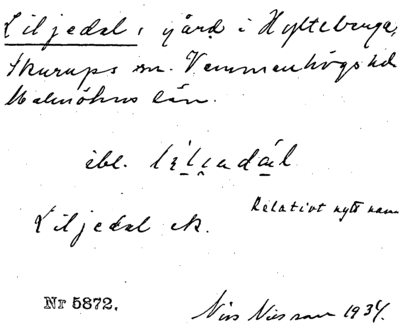 Liljedal, gård i Hylteberga,
Skurups sn. Vemmenhögs hd
Malmöhus län.
ibl. lìli̯adál
Relativt nytt namn
Liljedal ek.
Nr 5872.
Nils Nilsson 1934.